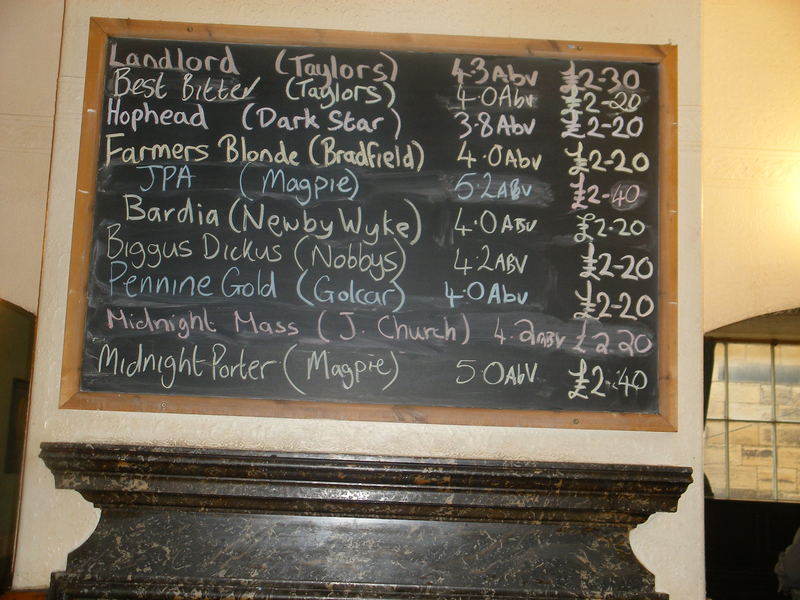 Landlord (Taylors) 4.3Abv £2-30
Best Bitter (Taylors) 4.0Abv £2-20
Hophead (Dark Star) 3.8Abv £2-20
Farmers Blonde (Bradfield) 4.0Abv £2-20
JPA (Magpie) 5.2ABV £2-40
Bardia (Newby Wyke) 4.0ABV £2.20
Biggus Dickus (Nobbys) 4.2ABV £2-20
Pennine Gold (Golcar) 4.0Abv £2-20
Midnight Mass (J. Church) 4.2ABV £2.20
Midnight Porter (Magpie) 5.0AbV £2.40